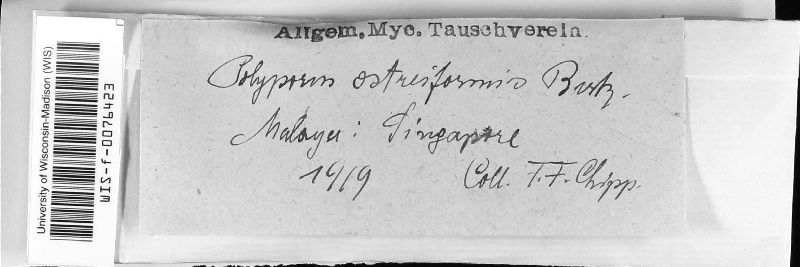 University of Wisconsin-Madison (WIS)
WIS-f-0076423
Allgem. Myc. Tauschverein.
Polyporus ostreiformis Berk.
Malaya: Singapore
1919 Coll. T.F. Chipp.